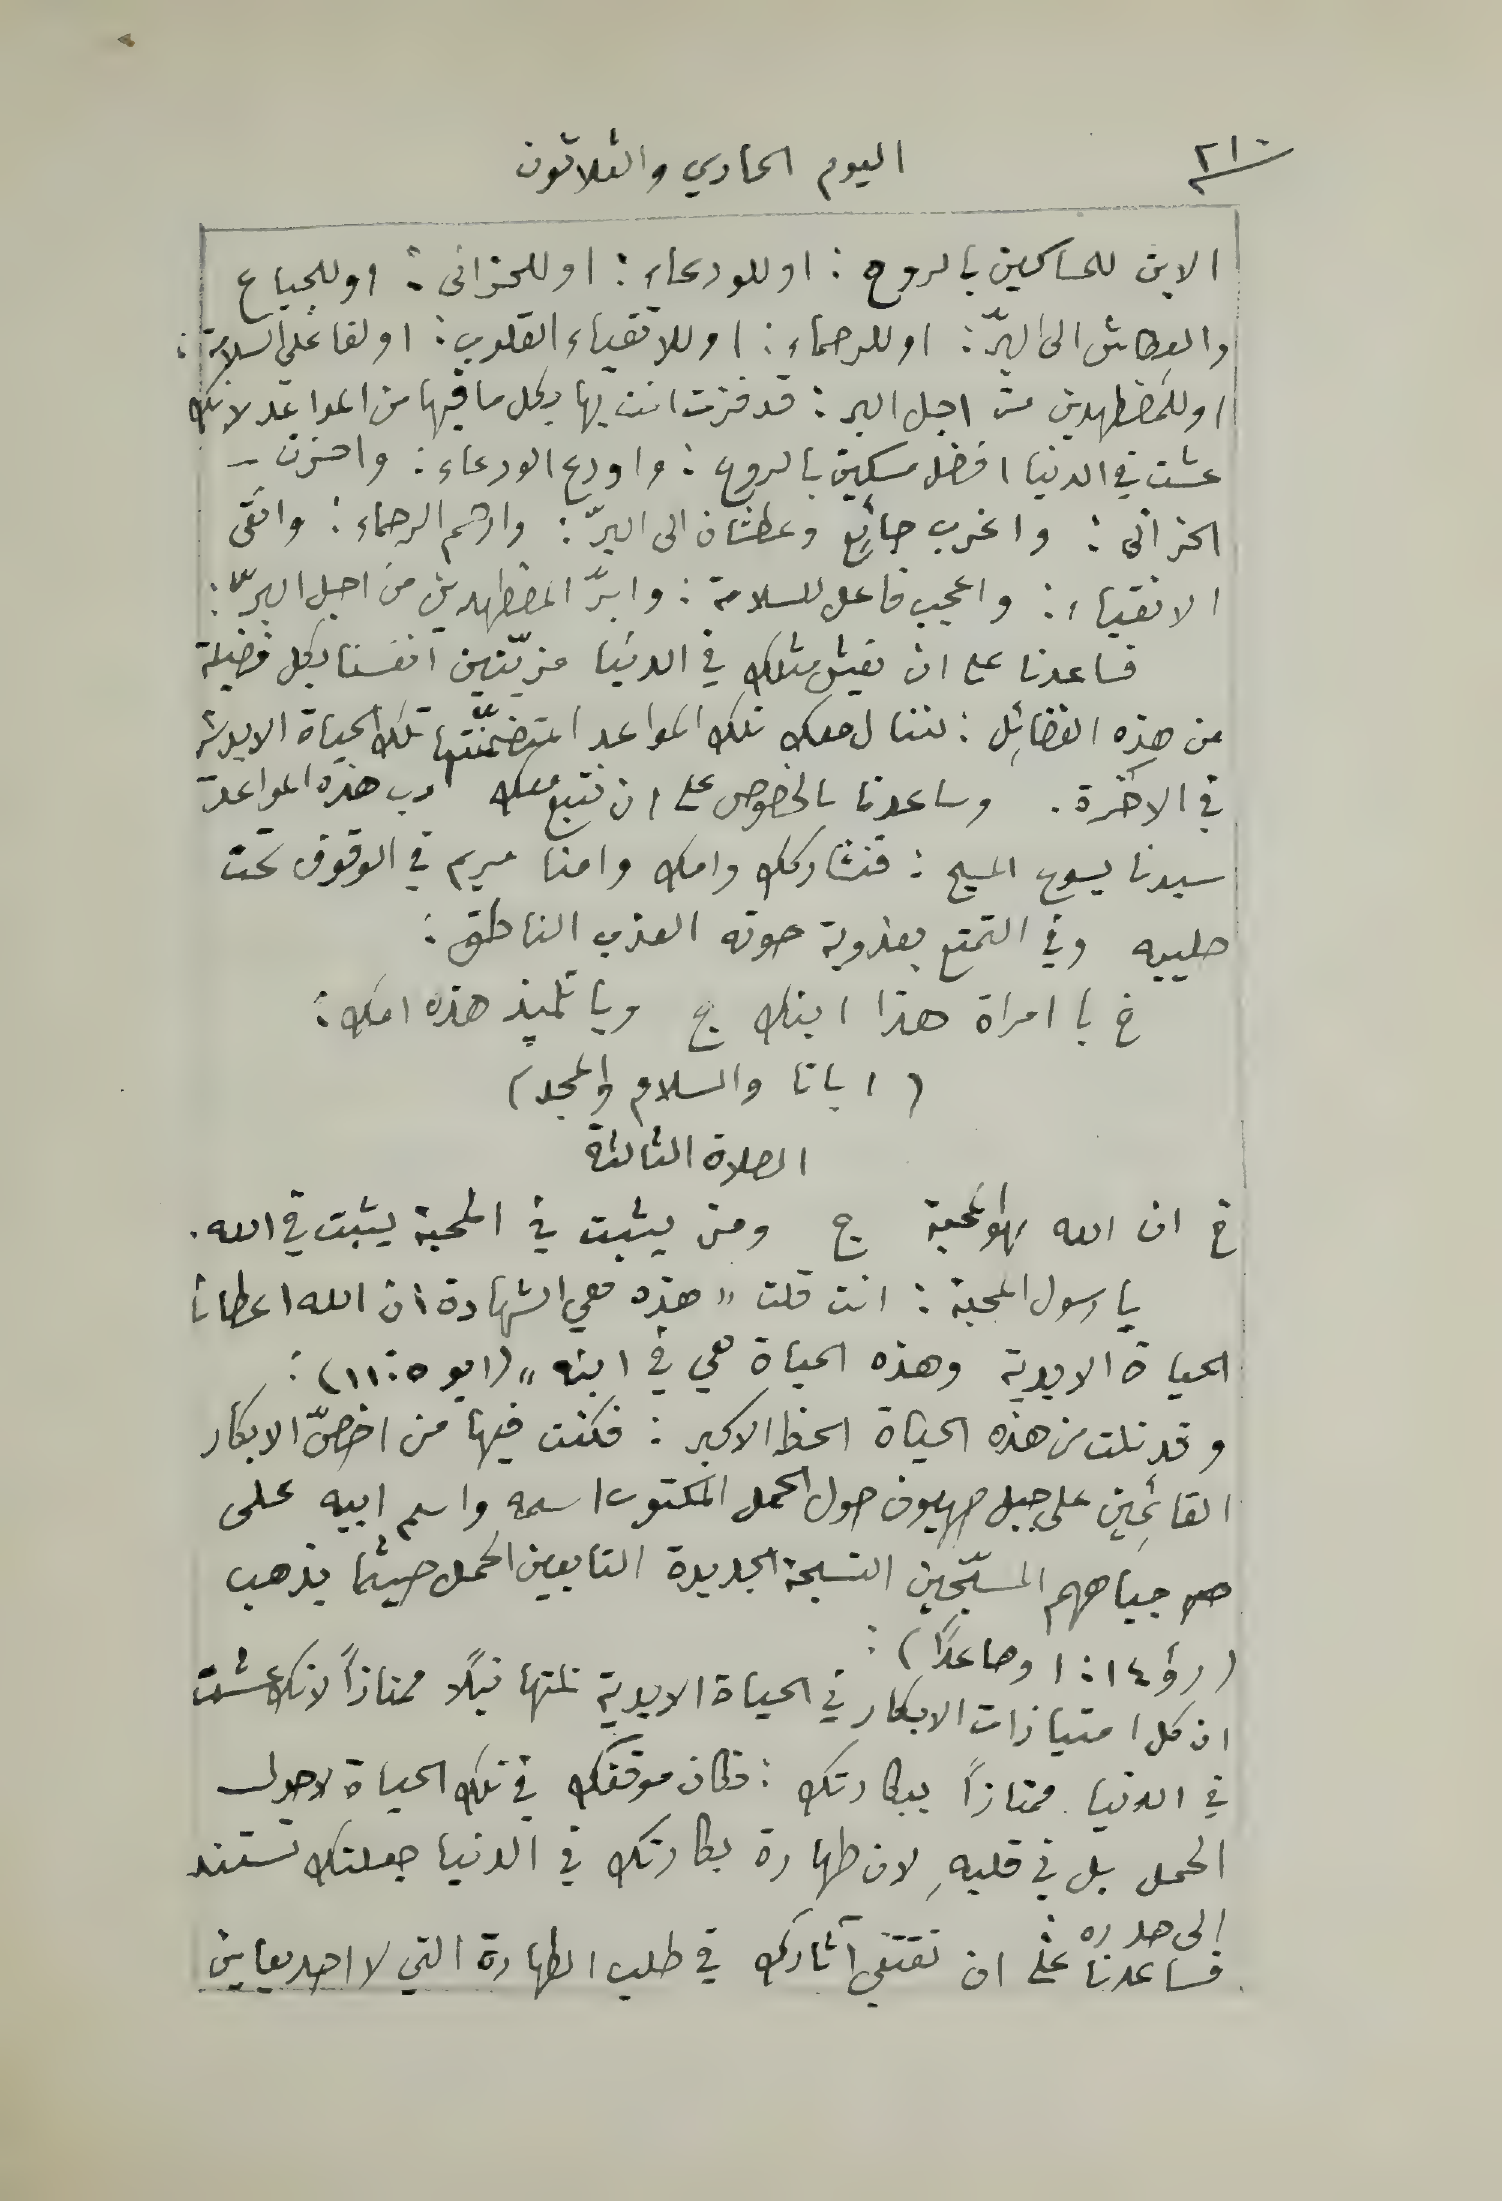 ٢١٠
اليوم الحادي والثلاثون
الابن للمساكين بالروح : او للودعاء : او للحزانى : او للجياع
والعطاش الى البرّ : او للرحماء : او للاتقياء القلوب : او لفاعلي السلامة :
او للمضطهدين من اجل البر : قد فزت انت بها وبكل ما فيها من المواعد لانك
عشت في الدنيا افضل مسكين بالروح : واودع الودعاء : واحزن –
الحزانى : و جائع وعطشان الى البرّ : وارحم الرحماء : وانقى
الانقياء : واعجب فاعل للسلامة : وابرّ المضطهدين من اجل البرّ :
فساعدنا على ان نعيش مثلك في الدنيا مزيّنين انفسنا بكل فضيلة
من هذه الفضائل : لننال معك تلك المواعد المتضمّنتها تلك الحياة الابدية
في الآخرة . وساعدنا بالخصوص على ان نتبع معك رب هذه المواعد
سيدنا يسوع المسيح : فنشاركك وامك وامنا مريم في الوقوف تحت
صليبه وفي التمتع بعذوبة صوته العذب الناطق :
خ يا امراة هذا ابنك ج ويا تلميذ هذه امك :
( ابانا والسلام والمجد )
الصلاة الثالثة
خ ان الله هو المحبة ج ومن يثبت في المحبة يثبت في الله .
يا رسول المحبة : انت قلت " هذه هي الشهادة ان الله اعطانا
الحياة الابدية وهذه الحياة هي في ابنه " (١يو ٥ : ١١) :
وقد نلت من هذه الحياة الحظ الاكبر : فكنت فيها من اخصّ الابكار
القائمين على جبل صهيون حول الحمل المكتوب اسمه واسم ابيه على
جباههم المسبّحين التسبحة الجديدة التابعين الحمل حيثما يذهب
(رؤ ١٤ : ١ وصاعدًا) :
ان كل امتيازات الابكار في الحياة الابدية نلتها نيلًا ممتازاً لانك عشت
في الدنيا ممتازاً ببكارتك : فكان موقفك في تلك الحياة لا حول
الحمل بل في قلبهِ لان طهارة بكارتك في الدنيا جعلتك تستند
الى صدره
فساعدنا على ان نقتفي آثارك في طلب الطهارة التي لا احد يعاين